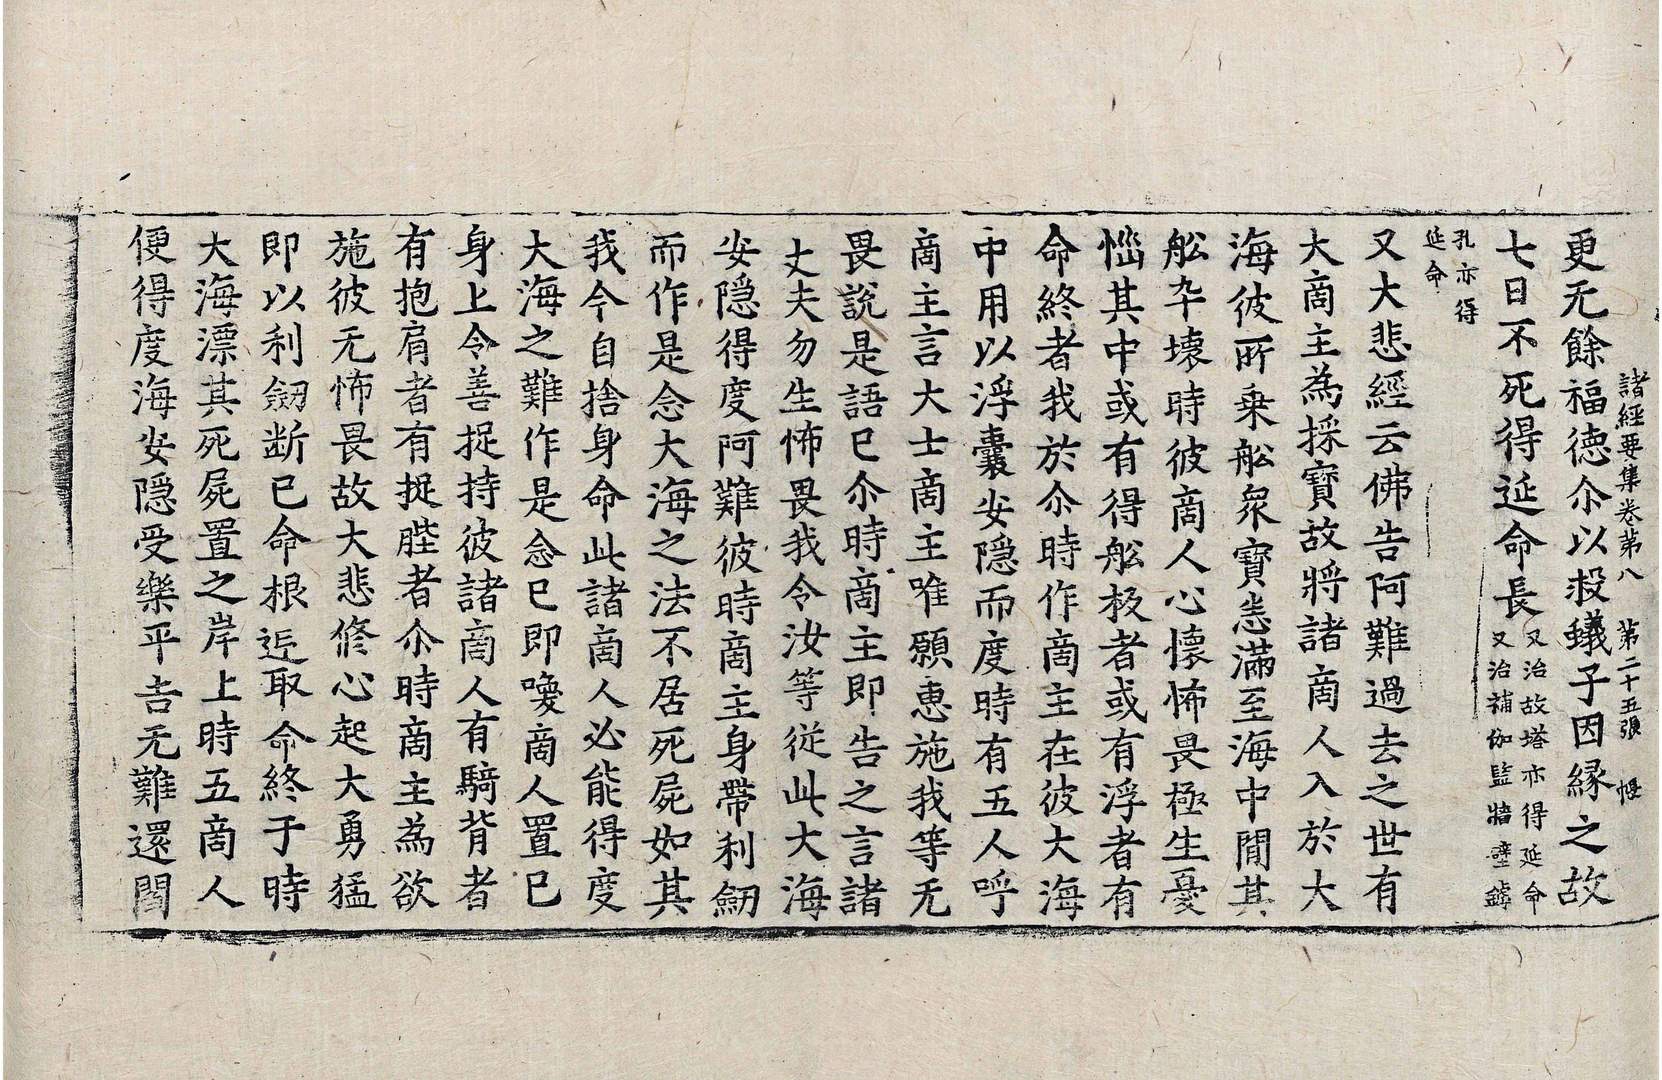 諸經要集卷第八　第二十五張　帳
更无餘福德尒以救蟻子因緣之故
七日不死得延命長又治故塔亦得延命又治補伽監牆壁鏬
孔亦得延命
又大悲經云佛告阿難過去之世有
大啇主為採寶故將諸啇人入於大
海彼所乗舩衆寶悉滿至海中閒其
舩卒壊時彼啇人心懐怖畏極生憂
惱其中或有得舩板者或有浮者有
命終者我於尒時作啇主在彼大海
中用以浮囊安隱而度時有五人呼
啇主言大士啇主唯願惠施我等无
畏說是語已尒時啇主即告之言諸
丈夫勿生怖畏我令汝等從此大海
安隱得度阿難彼時啇主身帶利劒
而作是念大海之法不居死屍如其
我今自捨身命此諸啇人必能得度
大海之難作是念已即喚啇人置已
身上令善捉持彼諸啇人有騎背者
有抱肩者有捉䏶者尒時啇主為欲
施彼无怖畏故大悲修心起大勇猛
即以利劒断已命根近取命終于時
大海漂其死屍置之岸上時五啇人
便得度海安隱受樂平吉无難還閻